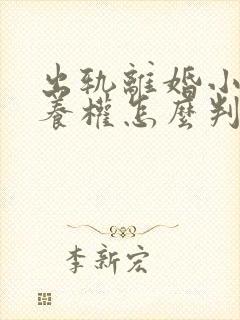 出軌離婚小
養權怎麼判
李新宏